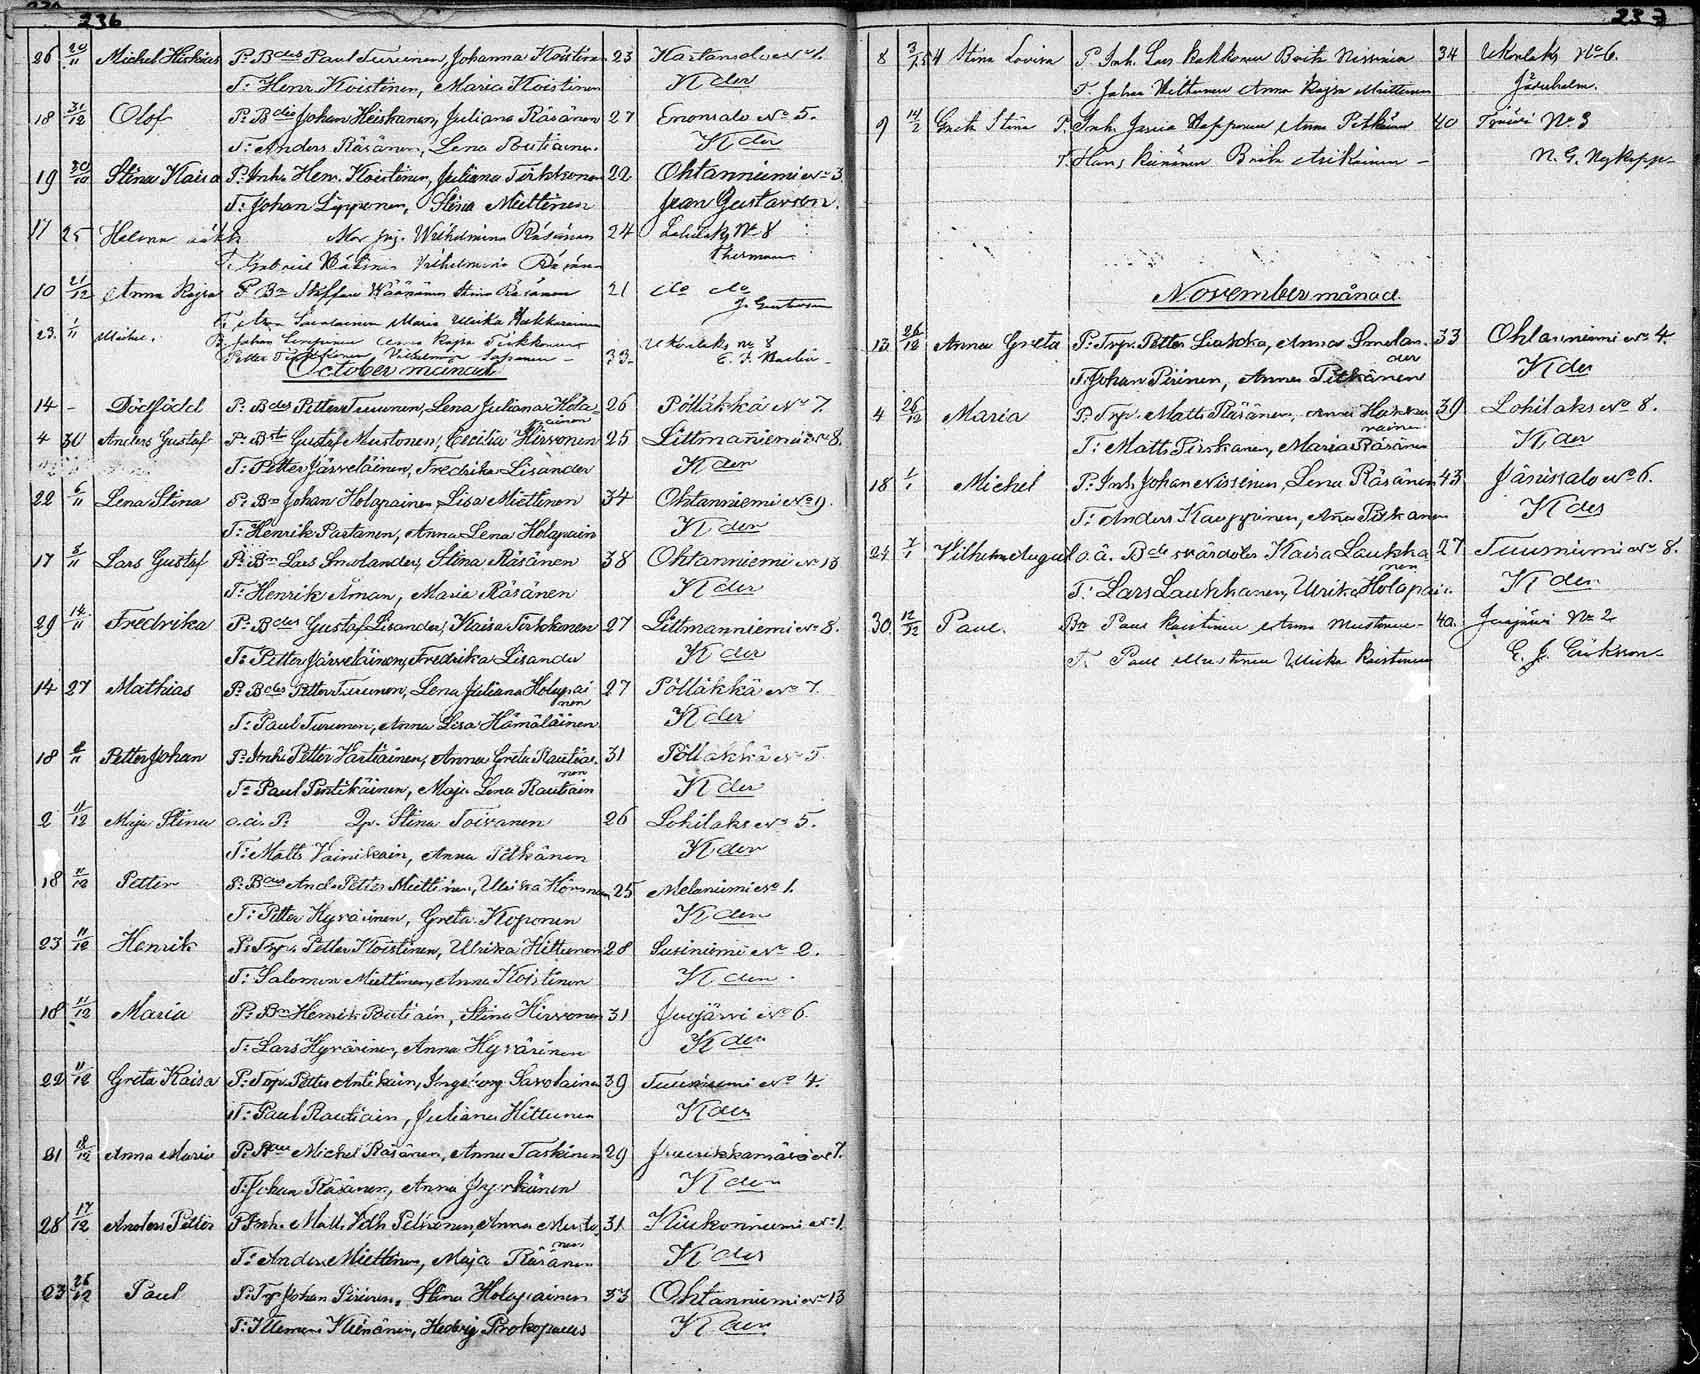 236
26 20/11 Michel Hiskias P: Bdes Paul Turunen, Johanna Koistinen 23 Hartansalo No 1.
T: Henr Koistinen, Maria Koistinen K der
18 31/12 Olof P: Bdes Johan Heiskanen, Juliana Räsänen 27 Enonsalo No 5.
T: Anders Räsänen, Lena Poutiainen. K der
19 30/10 Stina Kaisa P: Inh. Henr. Koistinen, Juliana Tirkkonen 22 Ohtanniemi No 3.
T: Johan Lipponen, Stina Miettinen Jean Gustavson.
17 25 Helena oäkta Mor pig. Wilhelmina Räsänen 24 Lohilaks No 8
T. Gabriel Wilhelmina Räsänen Therman
10 21/12 Anna Kajsa P Bn Steffan Wäänänen Stina Räsänen 21 do do
T. Savolainen Maria Ulrika J. Gustavson
23. 1/11 Michel. Johan Anna Kajsa Tirkkonen Ukonlaks No 8
Petter Vilhelmina 33.
October månad
14 - Dödfödd P: Bdes Petter Turunen, Lena Juliana Hola- 26 Pölläkkä No 7.
painen
4 30 Anders Gustaf P: Bde Gustaf Mustonen, Cecilia Hirvonen 25 Littmanniemi No 8.
T: Petter Järveläinen, Fredrika Lisander K der
22 6/11 Lena Stina P: Bn Johan Holapainen, Lisa Miettinen 34 Ohtanniemi No 9.
T: Henrik Partanen, Anna Lena Holapain K der
17 8/11 Lars Gustaf P: Bn Lars Smolander, Stina Räsänen 38 Ohtanniemi No 13
T: Henrik Åman, Maria Räsänen K der
29 14/11 Fredrika P: Bdes Gustaf Lisander, Kaisa Tirkkonen 27 Littmanniemi No 8.
T: Petter Järveläinen, Fredrika Lisander K der
14 27 Mathias P: Bdes Petter Turunen, Lena Juliana Holapai 27 Pölläkkä No 7.
nen
T: Paul Turunen, Anna Lisa Hämäläinen K der
18 8/11 Petter Johan P: Inh. Petter Vartiainen, Anna Greta Rautiai- 31 Pölläkkä No 5.
nen
T: Paul Pentikäinen, Maja Lena Rautiain K der
2 11/12 Maja Stina o.ä. P: Qp. Stina Toivanen 26 Lohilaks No 5.
T: Matts Vainikain, Anna Pitkänen K der
18 11/12 Petter P: Bdes And. Petter Miettinen, Ulrika 25 Melaniemi No 1.
T: Petter Hyvärinen, Greta Koponen K der
23 11/12 Henrik P: Trp. Petter Koistinen, Ulrika Hiltunen 28 Susiniemi No 2.
T: Salomon Miettinen, Anna Koistinen K der
18 11/12 Maria P: Bn Henrik Poutiain, Stina Hirvonen 31 Juojärvi No 6.
T: Lars Hyvärinen, Anna Hyvärinen K der
22 11/12 Greta Kaisa P: Trp. Petter Antikain, Ingeborg Savolainen 39 Tuusniemi No 4.
T: Paul Rautiain, Juliana Hiltunen K der
21 18/12 Anna Maria P: Michel Räsänen, Anna Taskinen 29 Juurikkamäki No 7.
T: Johan Räsänen, Anna Jyrkänen K der
28 17/12 Anders Petter P: Inh. Matts Vilh. Pelkonen, Anna Musto 31 Kiukoniemi No 1.
nen
T: Anders Miettinen, Maja Räsänen K der
23 26/12 Paul P: Trp Johan Pirinen, Stina Holapainen 33 Ohtanniemi No 13
T: Klemens Kienänen, Hedvig Prokopæus K der
237
8 3/1 54 Stina Lovisa P. Inh. Lars Kakkonen Brita Nissinen 34 Ukonlaks No 6.
T. Johan Hiltunen Anna Kajsa Miettinen
9 14/2 Greta Stina P. Inh. Anna Pitkänen 40 No 3
T. Hans Brita N. G.
November månad.
13 26/12 Anna Greta P: Trp. Petter Liukka, Anna Smolan- 33 Ohtanniemi No 4.
der
T: Johan Pirinen, Anna Pitkänen K der
4 26/12 Maria P: Trp. Matts Räsänen, Anna Hakka- 39 Lohilaks No 8.
rainen
T: Matts Pirskanen, Maria Räsänen K der
18 1/1 Michel P: Inh. Johan Nissinen, Lena Räsänen 43 Jänissalo No 6.
T: Anders Kauppinen, Anna Pitkänen K der
24 7/1 Vilhelm August o.ä. Bde Kaisa Laukka 27 Tuusniemi No 8.
nen
T: Lars Laukkanen, Ulrika Holapain. K der
30 12/12 Paul. Bn Paul Koistinen Anna Mustonen 40. Juojärvi No 2
T. Paul Mustonen Ulrika Koistinen E. J. Eriksson